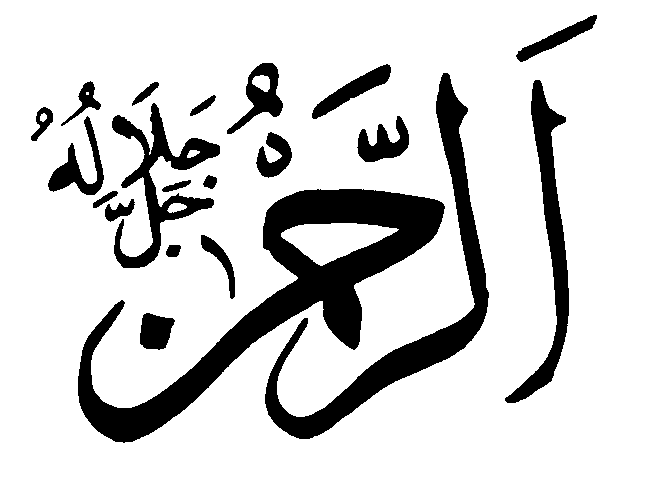 اَلرَّحْمٰنُ
جَلَّ جَلَالُهُ